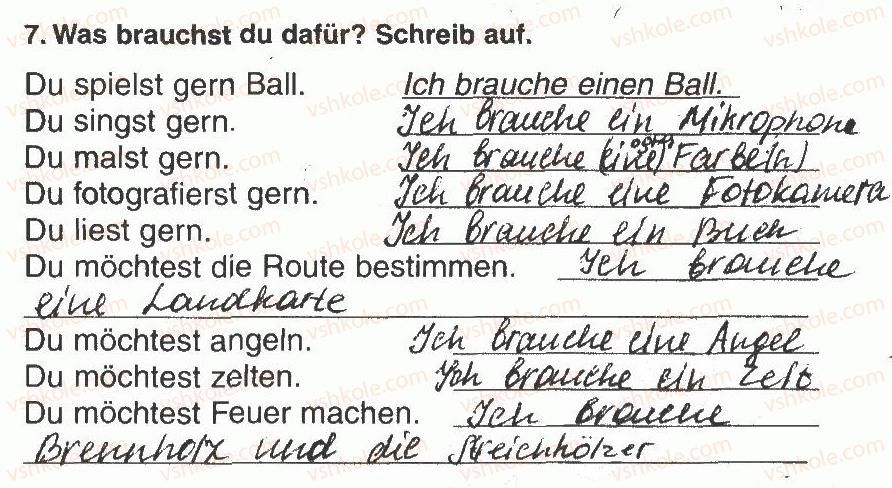 7. Was brauchst du dafür? Schreib auf.
Du spielst gern Ball. Ich brauche einen Ball.
Du singst gern. Ich brauche ein Mikrophone
Du malst gern. Ich brauche (eine) Farbe(n)
Du fotografierst gern. Ich brauche eine Fotokamera
Du liest gern. Ich brauche ein Buch
Du möchtest die Route bestimmen. Ich brauche
eine Landkarte
Du möchtest angeln. Ich brauche eine Angel
Du möchtest zelten. Ich brauche ein Zelt
Du möchtest Feuer machen. Ich brauche
Brennholz und die Streichhölzer